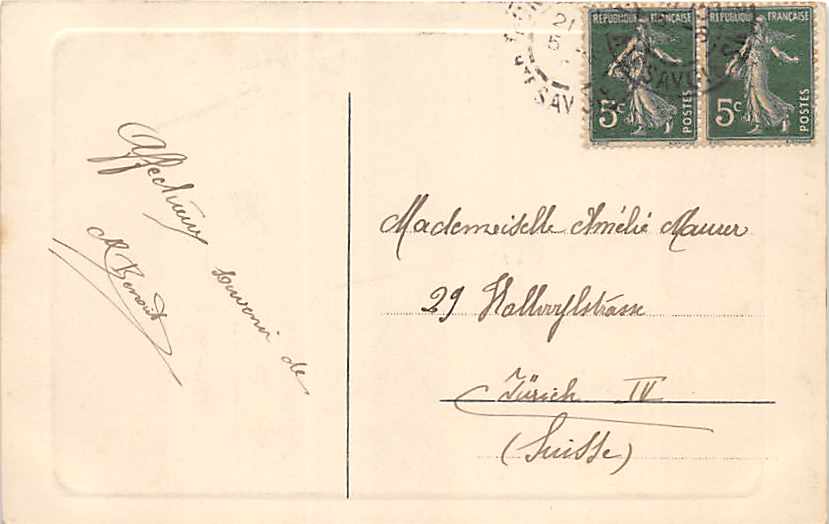 Affectueux
souvenir de
A Benoit
Mademoiselle Amélie Maurer
29 Hallwylstrasse
Zürich IV
(Suisse)
REPUBLIQUE FRANÇAISE
5c
POSTES
REPUBLIQUE FRANÇAISE
5c
POSTES
21
5
SAV
SAVOIE